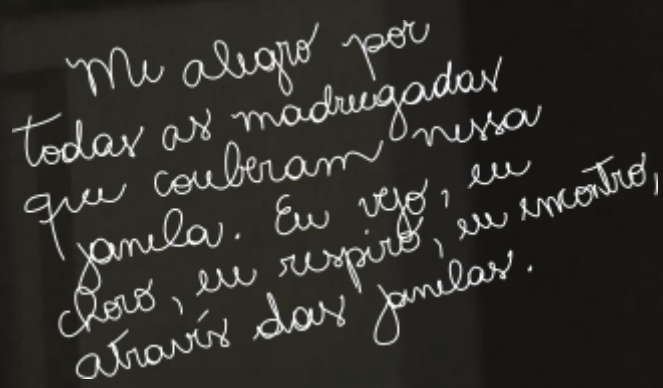 Me alegro por
todas as madrugadas
que couberam nessa
janela. Eu vejo, eu
choro, eu respiro, eu encontro,
através das janelas.